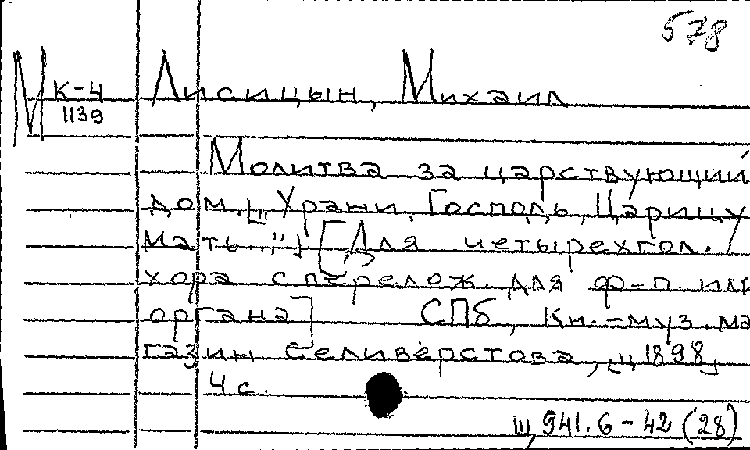 578
М К-4 Лисицын, Михаил
1139
Молитва за царствующий
дом. [„Храни, Господь, Царицу
мать..."] [Для четырехгол.
хора с перелож. для ф-п или
органа] СПб, Кн.-муз. ма
газин Селиверстова, [1898]
4 с.
Ш, 941.6-42 (28)